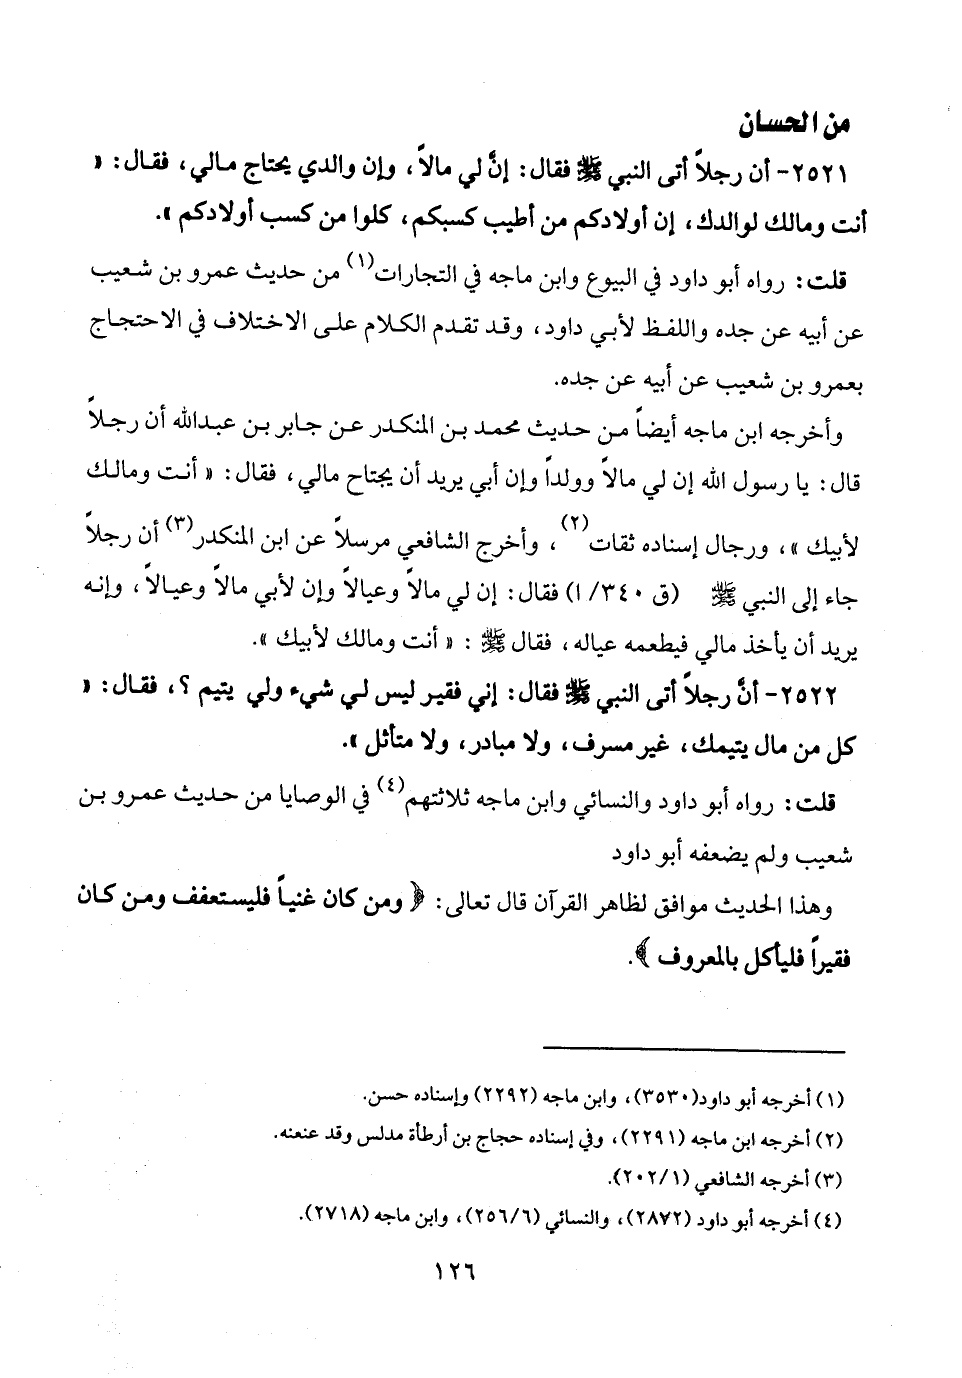 من الحسان
٢٥٢١- أن رجلاً أتى النبي ﷺ فقال: إنَّ لي مالاً، وإن والدي يحتاج مالي، فقال: «
أنت ومالك لوالدك، إن أولادكم من أطيب كسبكم، كلوا من كسب أولادكم».
قلت: رواه أبو داود في البيوع وابن ماجه في التجارات(١) من حديث عمرو بن شعيب
عن أبيه عن جده واللفظ لأبي داود، وقد تقدم الكلام على الاختلاف في الاحتجاج
بعمرو بن شعيب عن أبيه عن جده.
وأخرجه ابن ماجه أيضاً من حديث محمد بن المنكدر عن جابر بن عبدالله أن رجلاً
قال: يا رسول الله إن لي مالاً وولداً وإن أبي يريد أن يجتاح مالي، فقال: « أنت ومالك
لأبيك »، ورجال إسناده ثقات(٢)، وأخرج الشافعي مرسلاً عن ابن المنكدر(٣) أن رجلاً
جاء إلى النبي ﷺ (ق ٣٤٠/أ) فقال: إن لي مالاً وعيالاً وإن لأبي مالاً وعيالاً، وإنه
يريد أن يأخذ مالي فيطعمه عياله، فقال ﷺ : « أنت ومالك لأبيك ».
٢٥٢٢- أنَّ رجلاً أتى النبي ﷺ فقال: إني فقير ليس لي شيء ولي يتيم ؟، فقال: «
كل من مال يتيمك، غير مسرف، ولا مبادر، ولا متأثل ».
قلت: رواه أبو داود والنسائي وابن ماجه ثلاثتهم(٤) في الوصايا من حديث عمرو بن
شعيب ولم يضعفه أبو داود
وهذا الحديث موافق لظاهر القرآن قال تعالى: ﴿ ومن كان غنياً فليستعفف ومن كان
فقيراً فليأكل بالمعروف ﴾.
(١) أخرجه أبو داود(٣٥٣٠)، وابن ماجه (٢٢٩٢) وإسناده حسن.
(٢) أخرجه ابن ماجه (٢٢٩١)، وفي إسناده حجاج بن أرطأة مدلس وقد عنعنه.
(٣) أخرجه الشافعي (٢٠٢/١).
(٤) أخرجه أبو داود (٢٨٧٢)، والنسائي (٢٥٦/٦)، وابن ماجه (٢٧١٨).
١٢٦